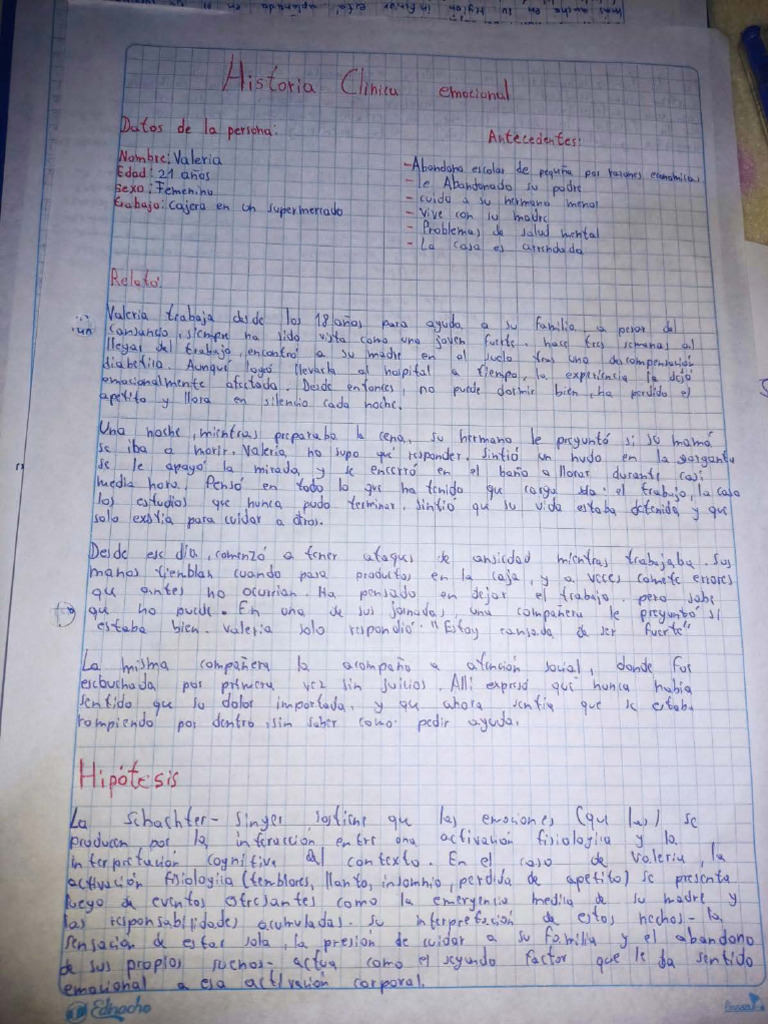 Historia Clinica emocional
Datos de la persona:
Nombre: Valeria
Edad: 21 años
Sexo: Femenino
trabajo: Cajera en un supermercado
Antecedentes:
- Abandono escolar de pequeña por razones economicas
- le Abandonado su padre
- cuido a su hermano menor
- Vive con su madre
- Problemas de salud mental
- La casa es arrendada
Relato
Valeria trabaja desde los 18 años para ayuda a su familia, a pesar del
cansancio, siempre ha sido vista como una joven fuerte. hace tres semanas al
llegar del trabajo, encontró a su madre en el suelo tras una descompensación
diabetica. Aunque logó llevarla al hospital a tiempo, la experiencia la dejó
emocionalmente afectada. Desde entonces, no puede dormir bien, ha perdido el
apetito y llora en silencio cada noche.
Una noche, mientras preparaba la cena, su hermano le preguntó si su mamá
se iba a morir. Valeria, no supo qué responder. Sintió un nudo en la garganta
se le apagó la mirada, y se encerró en el baño a llorar durante casi
media hora. Pensó en todo lo que ha tenido que cargar sola: el trabajo, la casa
los estudios que nunca pudo terminar. sintió que su vida estaba detenida y que
solo existia para cuidar a otros.
Desde ese dia, comenzó a tener ataques de ansiedad mientras trabajaba. Sus
manos tiemblan cuando pasa productos en la caja, y a veces comete errores
que antes no ocurrian. Ha pensado en dejar el trabajo, pero sabe
que no puede. En una de sus jornadas, una compañera le preguntó si
estaba bien. Valeria solo respondió: "Estoy cansada de ser fuerte"
La misma compañera la acompaño a atención social, donde fue
escbuchada por primera vez sin juicios. Alli expresó que nunca habia
sentido que su dolor importada, y que ahora sentia que se estaba
rompiendo por dentro, sin saber como pedir ayuda.
Hipótesis
La Schachter- Singer sostiene que las emociones (qu las) se
producen por la interacción entre una activación fisiologica y la
interpretación cognitiva del contexto. En el caso de Valeria, la
activación fisiologica (temblores, llanto, insomnio, perdida de apetito) se presenta
luego de eventos estresantes como la emergencia medica de su madre y
las responsabilidades acumuladas. su interpretación de estos hechos- la
sensación de estar sola, la presión de cuidar a su familia y el abandono
de sus propios sueños- actua como el segundo factor que le da sentido
emocional a esa activación corporal.
Ednacho